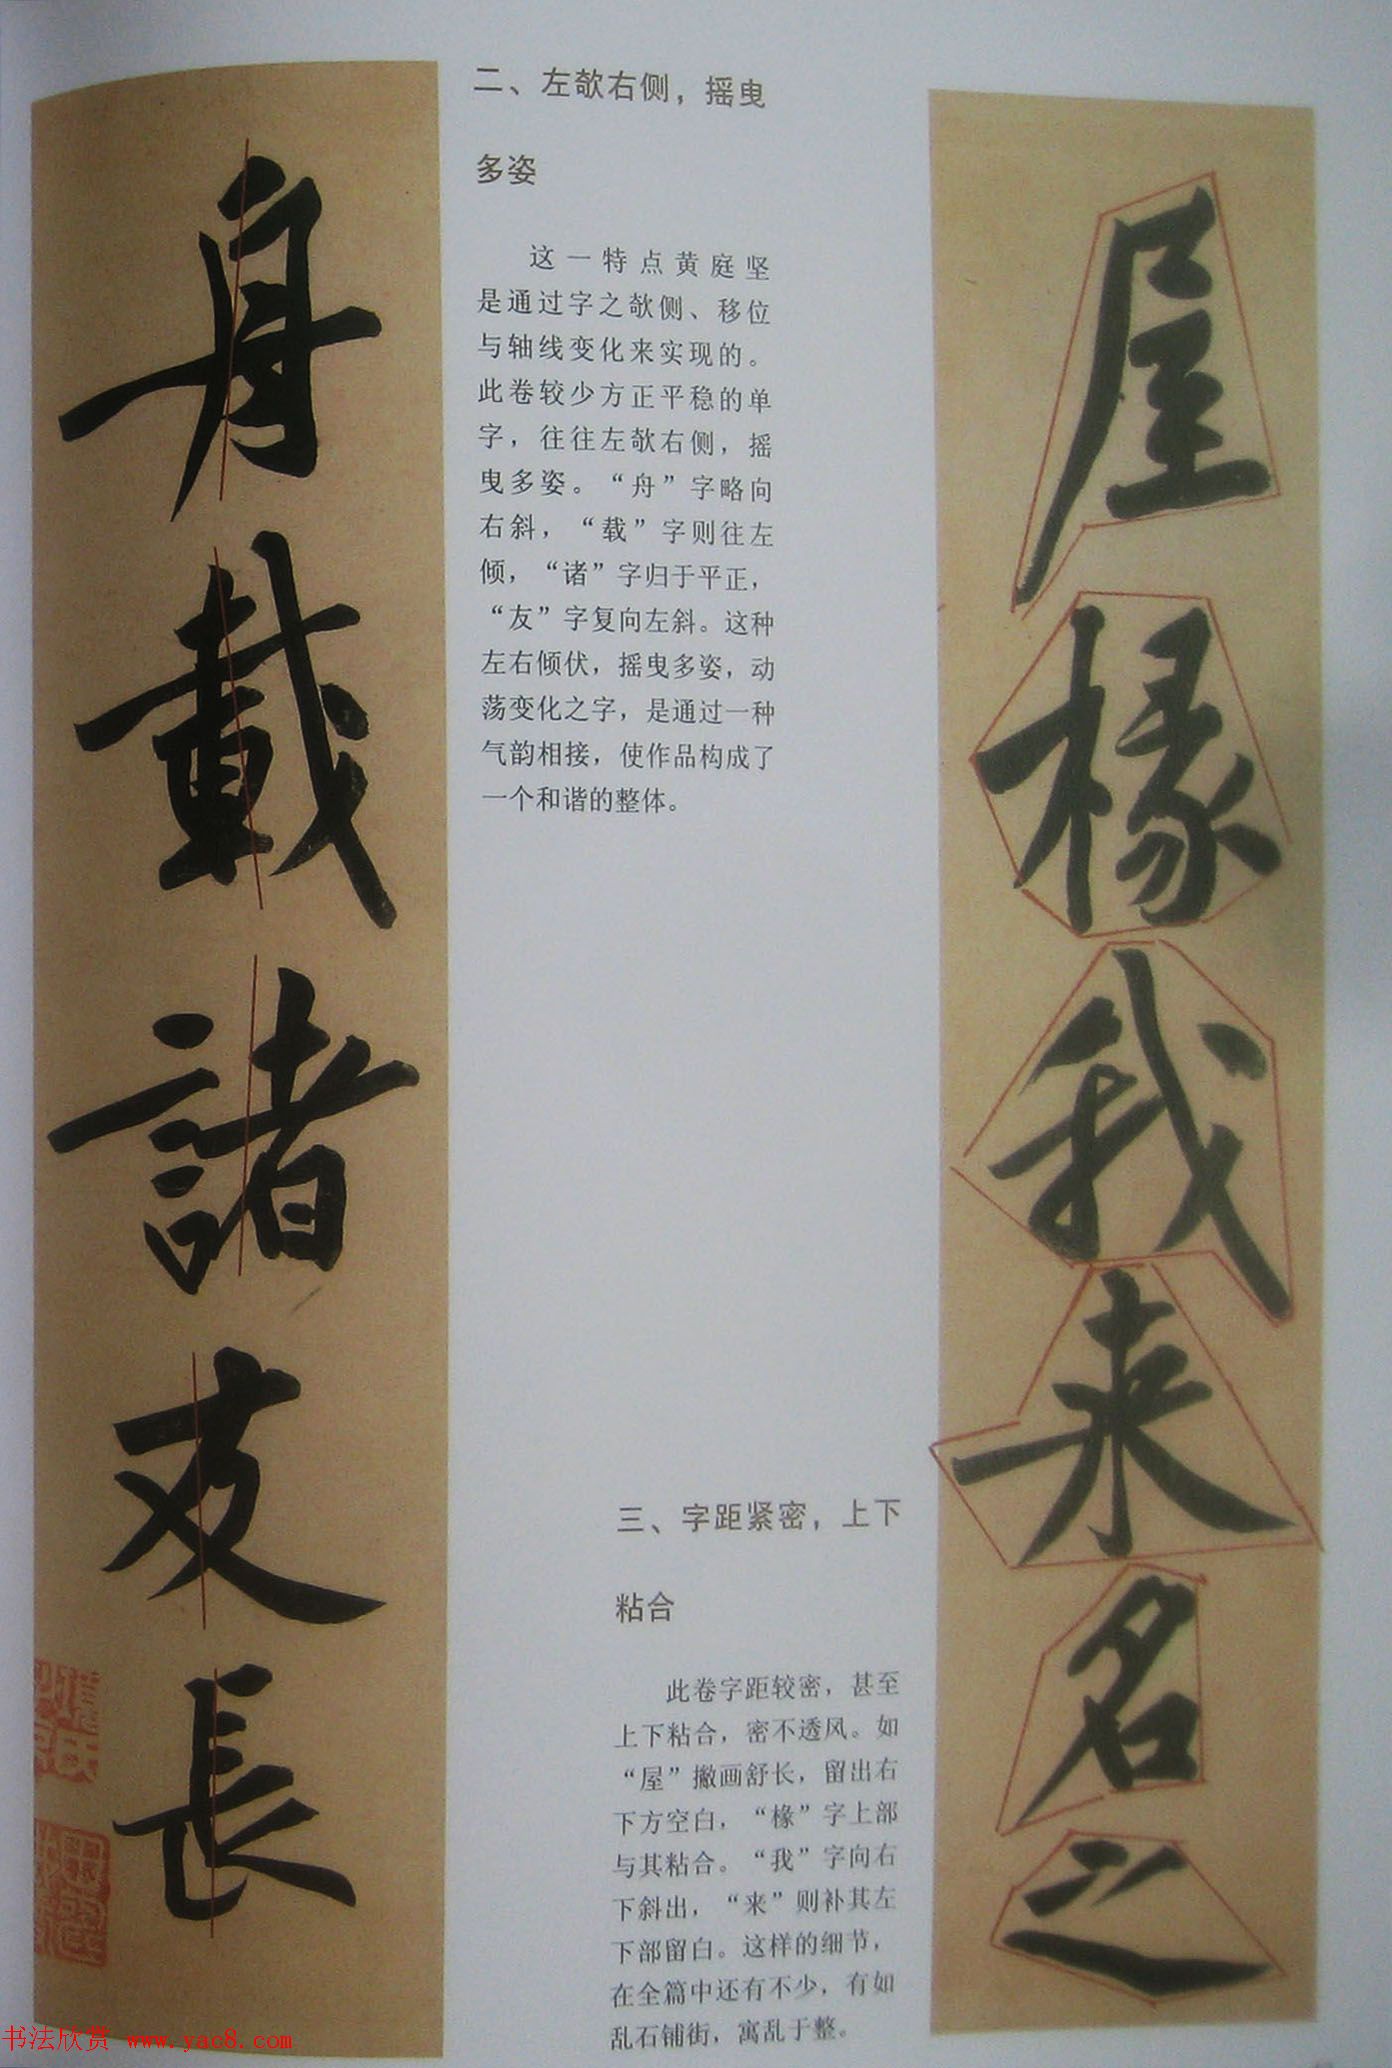 舟
載
諸
友
長
二、左欹右侧，摇曳
多姿
这一特点黄庭坚
是通过字之欹侧、移位
与轴线变化来实现的。
此卷较少方正平稳的单
字，往往左欹右侧，摇
曳多姿。“舟”字略向
右斜，“载”字则往左
倾，“诸”字归于平正，
“友”字复向左斜。这种
左右倾伏，摇曳多姿，动
荡变化之字，是通过一种
气韵相接，使作品构成了
一个和谐的整体。
三、字距紧密，上下
粘合
此卷字距较密，甚至
上下粘合，密不透风。如
“屋”撇画舒长，留出右
下方空白，“椽”字上部
与其粘合。“我”字向右
下斜出，“来”则补其左
下部留白。这样的细节，
在全篇中还有不少，有如
乱石铺街，寓乱于整。
屋
椽
我
来
名
之
书法欣赏 www.yac8.com